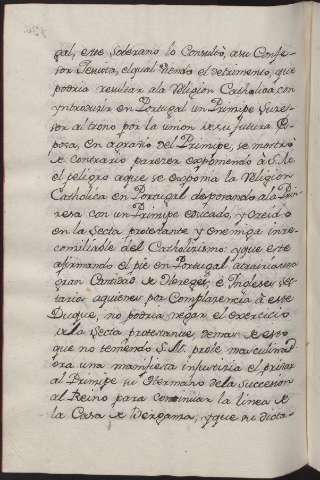 gal, este Soberano lo Consultó, a su Confe-
sor Jesuita, el qual viendo el detrimento, que
podria resultar a la Religion Catholica con
yntroduzir en Portugal un Principe Suces-
sor al trono por la union de su futura Es-
posa, en agravio del Principe, se mostró
de contrario parezer exponiendo a S. M.
el peligro a que se exponia la Religion
Catholica en Portugal desposando a la Prin-
cesa con un Principe educado, y
en la Secta protestante y enemiga irre-
conciliable del Catholizismo: y que este
afirmando el pie en Portugal atraeria una
gran Cantidad de Hereges, é Ingleses sec-
tarios aquienes por Complazencia á este
Duque, no podria negar el exercicio
de la Secta protestante, demas de esto
que no teniendo S. M. prole masculina
era una manifiesta injusticia el privar
al Principe su Hermano de la Succesion
al Reino para continuar la linea de
la Casa de Berganza, y que su dicta-